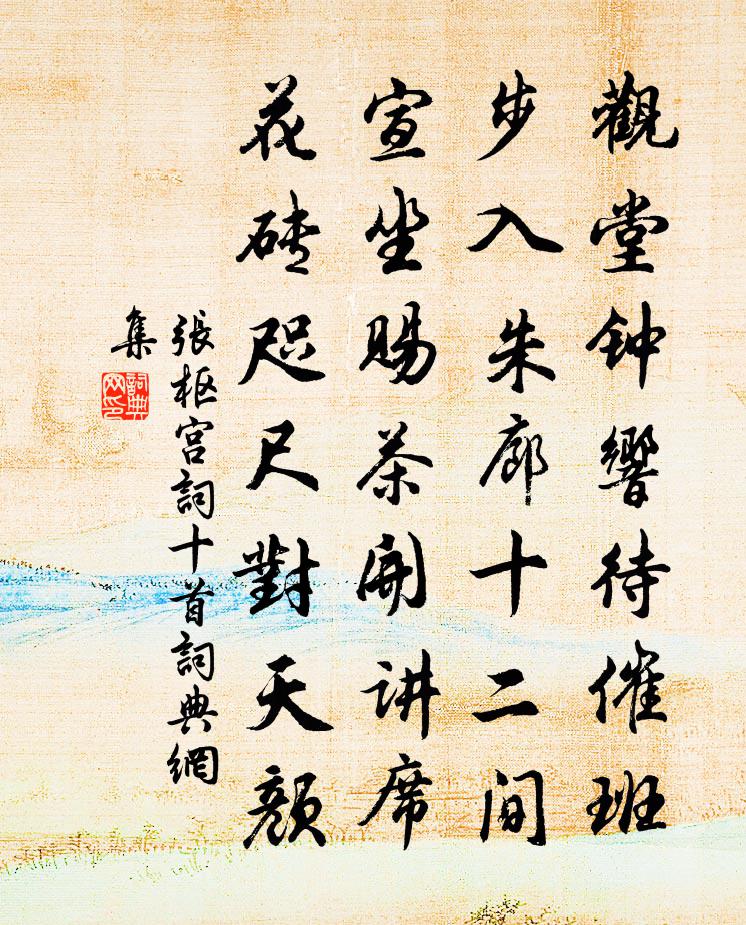 觀堂钟響待催班
步入朱廊十二间
宣坐赐茶開讲席
花砖咫尺對天颜
張枢宫詞十首詞典網
集
詞典
网印